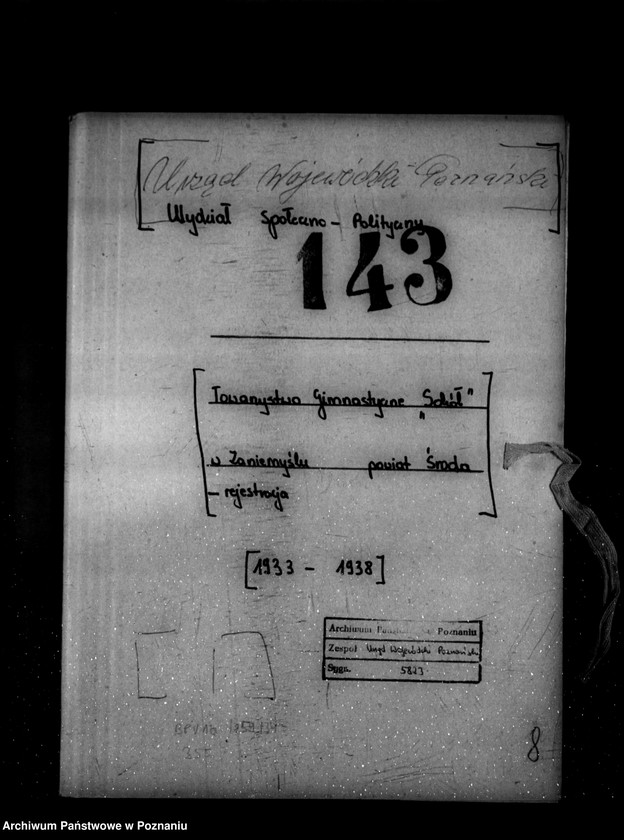 Urząd Wojewódzki Poznański
Wydział Społeczno - Polityczny
143
Towarzystwo Gimnastyczne "Sokół"
w Zaniemyślu powiat Środa
- rejestracja
[1933 - 1938]
Archiwum Państwowe w Poznaniu
Zespół Urząd Wojewódzki Poznański
Sygn. 5823
8
Archiwum Państwowe w Poznaniu